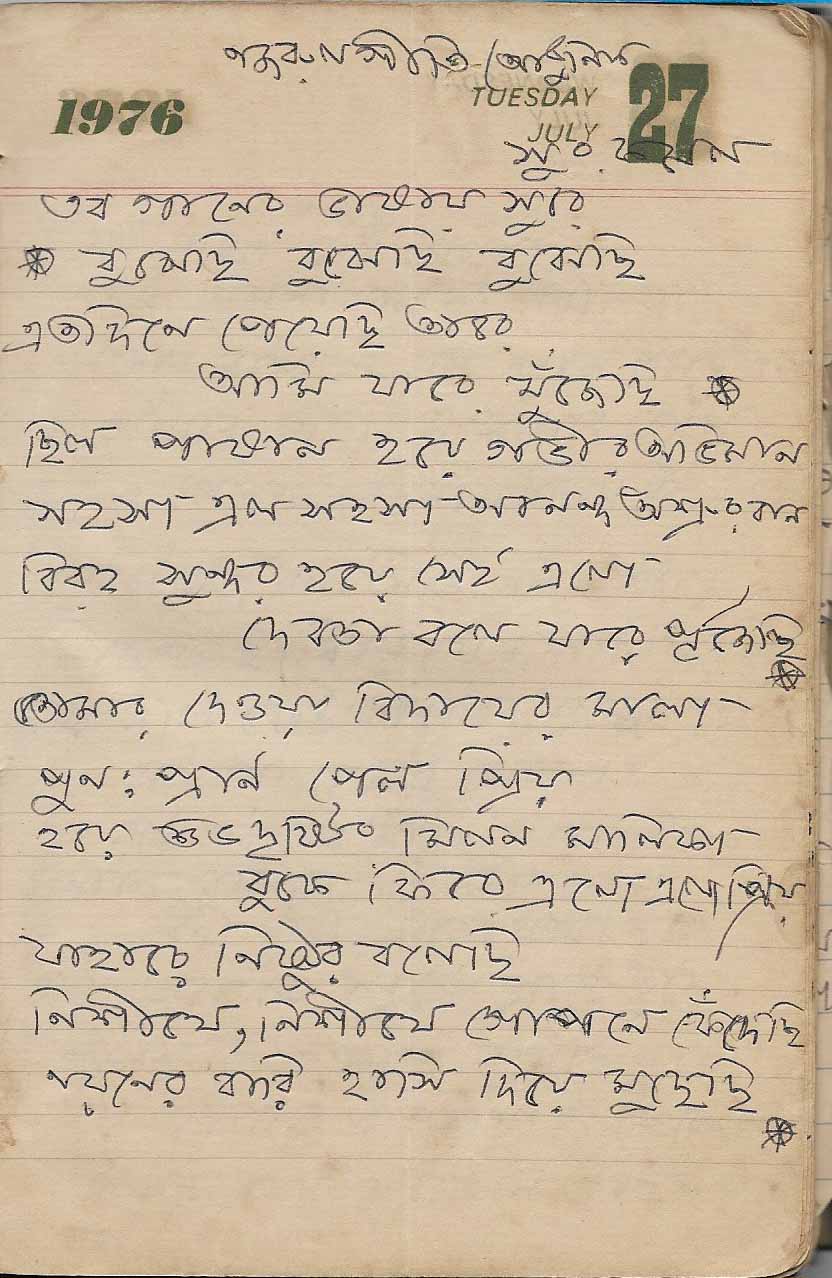 নজরুলগীতি (আধুনিক
1976
TUESDAY
JULY
27
সুর কমল
তব গানের ভাষায় সুরে
বুঝেছি বুঝেছি বুঝেছি
এতদিনে পেয়েছি তারে
আমি যারে খুঁজেছি
ছিল পাষান হয়ে গভীর অভিমান
সহসা এল সহসা আনন্দ অশ্রুর বান
বিরহ সুন্দর হয়ে সেই এলো
দেবতা বলে যারে পূজেছি
তোমার দেওয়া বিদায়ের মালা
পুনঃ প্রান পেল প্রিয়
হয়ে শুভদৃষ্টির মিলন মালিকা
বুকে ফিরে এলো এলো প্রিয়
যাহারে নিষ্ঠুর বলেছি
নিশীথে, নিশীথে গোপনে কেঁদেছি
নয়নের বারি হাসি দিয়ে মুছেছি